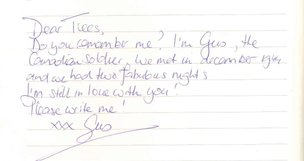 Dear Trees,
Do you remember me? I'm Gus, the
Canadian soldier. We met in december 1944
and we had two fabulous nights
I'm still in love with you!
Please write me!
xxx Gus